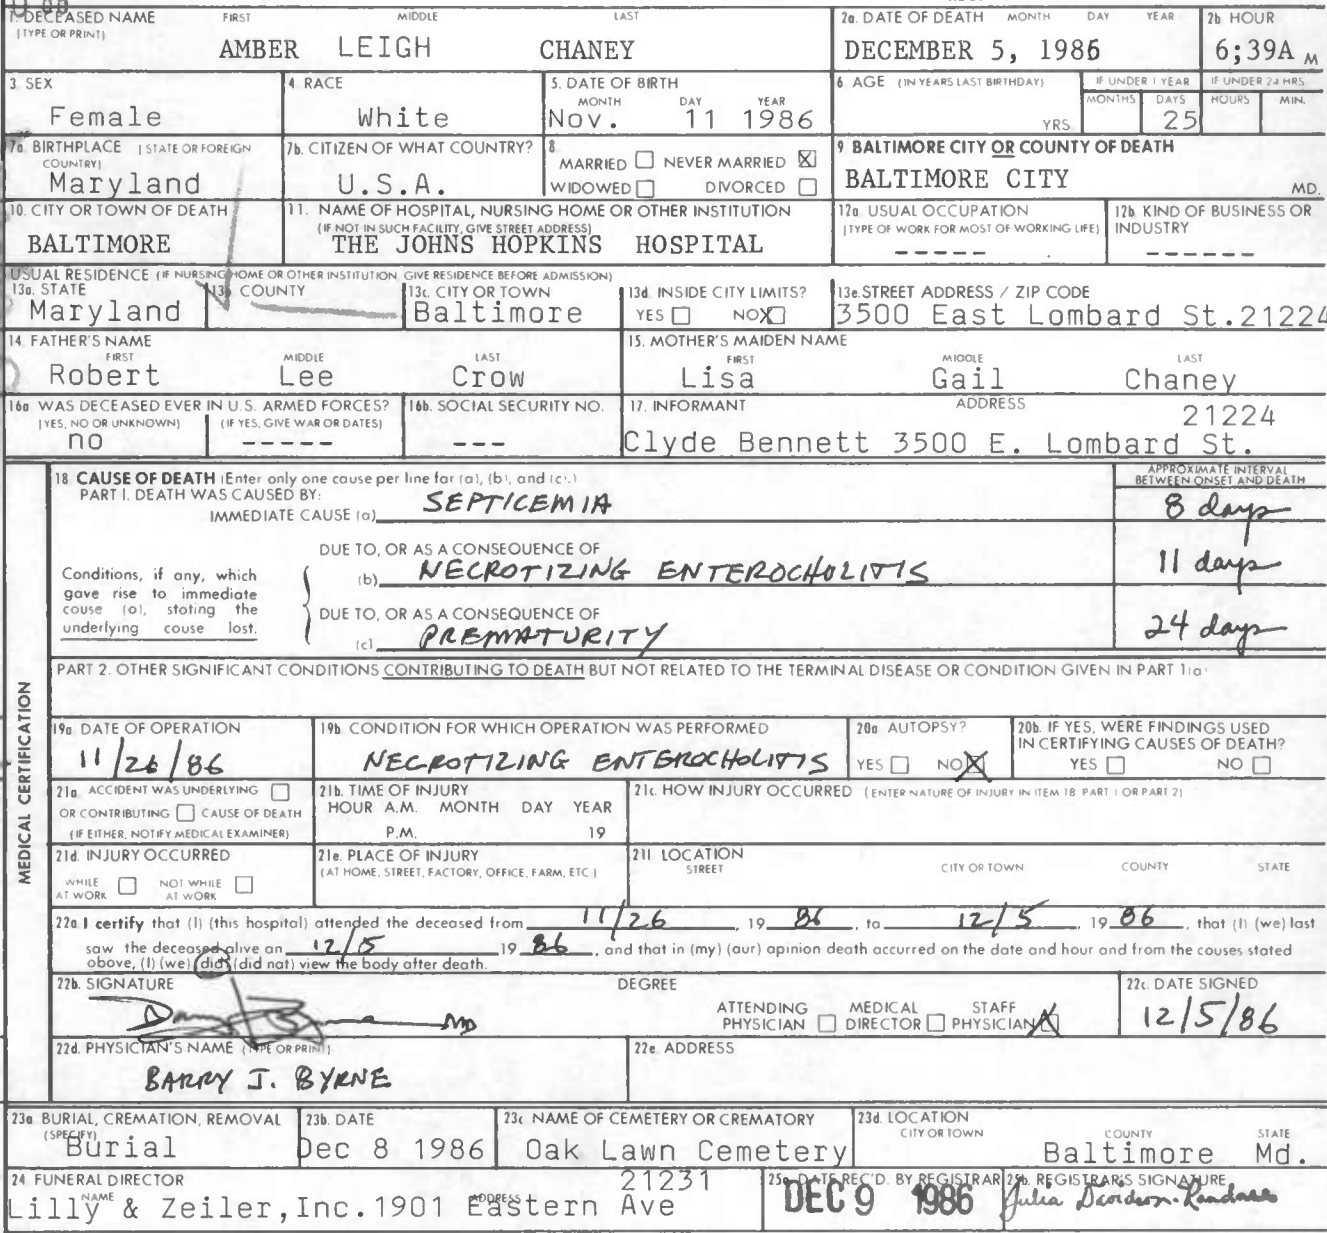 1. DECEASED NAME FIRST MIDDLE LAST
(TYPE OR PRINT)
AMBER LEIGH CHANEY
2a. DATE OF DEATH MONTH DAY YEAR
DECEMBER 5, 1986
2b HOUR
6;39A M
3 SEX
Female
4 RACE
White
5. DATE OF BIRTH
MONTH DAY YEAR
Nov. 11 1986
6 AGE (IN YEARS LAST BIRTHDAY)
YRS
IF UNDER 1 YEAR
MONTHS DAYS
25
IF UNDER 24 HRS.
HOURS MIN.
7a BIRTHPLACE (STATE OR FOREIGN
COUNTRY)
Maryland
7b. CITIZEN OF WHAT COUNTRY?
U.S.A.
8
MARRIED NEVER MARRIED X
WIDOWED DIVORCED
9 BALTIMORE CITY OR COUNTY OF DEATH
BALTIMORE CITY MD.
10. CITY OR TOWN OF DEATH
BALTIMORE
11. NAME OF HOSPITAL, NURSING HOME OR OTHER INSTITUTION
(IF NOT IN SUCH FACILITY, GIVE STREET ADDRESS)
THE JOHNS HOPKINS HOSPITAL
12a USUAL OCCUPATION
(TYPE OF WORK FOR MOST OF WORKING LIFE)
-----
12b KIND OF BUSINESS OR
INDUSTRY
------
USUAL RESIDENCE (IF NURSING HOME OR OTHER INSTITUTION, GIVE RESIDENCE BEFORE ADMISSION)
13a. STATE
Maryland
13b COUNTY
13c. CITY OR TOWN
Baltimore
13d. INSIDE CITY LIMITS?
YES NO X
13e. STREET ADDRESS / ZIP CODE
3500 East Lombard St.21224
14 FATHER'S NAME
FIRST MIDDLE LAST
Robert Lee Crow
15. MOTHER'S MAIDEN NAME
FIRST MIDDLE LAST
Lisa Gail Chaney
16a WAS DECEASED EVER IN U.S. ARMED FORCES?
(YES, NO OR UNKNOWN) (IF YES, GIVE WAR OR DATES)
no -----
16b. SOCIAL SECURITY NO.
---
17. INFORMANT ADDRESS
21224
Clyde Bennett 3500 E. Lombard St.
MEDICAL CERTIFICATION
18 CAUSE OF DEATH (Enter only one cause per line for (a), (b), and (c).)
APPROXIMATE INTERVAL
BETWEEN ONSET AND DEATH
PART I. DEATH WAS CAUSED BY:
IMMEDIATE CAUSE (a) SEPTICEMIA 8 days
DUE TO, OR AS A CONSEQUENCE OF
(b) NECROTIZING ENTEROCHOLITIS 11 days
Conditions, if any, which
gave rise to immediate
cause (a), stating the
underlying cause last.
DUE TO, OR AS A CONSEQUENCE OF
(c) PREMATURITY 24 days
PART 2. OTHER SIGNIFICANT CONDITIONS CONTRIBUTING TO DEATH BUT NOT RELATED TO THE TERMINAL DISEASE OR CONDITION GIVEN IN PART 1(a)
19a. DATE OF OPERATION
11/26/86
19b CONDITION FOR WHICH OPERATION WAS PERFORMED
NECROTIZING ENTEROCHOLITIS
20a AUTOPSY?
YES NO X
20b. IF YES, WERE FINDINGS USED
IN CERTIFYING CAUSES OF DEATH?
YES NO
21a. ACCIDENT WAS UNDERLYING
OR CONTRIBUTING CAUSE OF DEATH
(IF EITHER, NOTIFY MEDICAL EXAMINER)
21b. TIME OF INJURY
HOUR A.M. MONTH DAY YEAR
P.M. 19
21c. HOW INJURY OCCURRED (ENTER NATURE OF INJURY IN ITEM 18 PART 1 OR PART 2)
21d. INJURY OCCURRED
WHILE AT WORK NOT WHILE AT WORK
21e. PLACE OF INJURY
(AT HOME, STREET, FACTORY, OFFICE, FARM, ETC.)
21f. LOCATION
STREET CITY OR TOWN COUNTY STATE
22a I certify that (I) (this hospital) attended the deceased from 11/26, 19 86, to 12/5 19 86, that (I) (we) last
saw the deceased alive an 12/5 19 86, and that in (my) (our) opinion death occurred on the date and hour and from the causes stated
above, (I) (we) (did) (did not) view the body after death.
22b. SIGNATURE DEGREE
MD
ATTENDING PHYSICIAN MEDICAL DIRECTOR STAFF PHYSICIAN X
22c. DATE SIGNED
12/5/86
22d. PHYSICIAN'S NAME (TYPE OR PRINT)
BARRY J. BYRNE
22e. ADDRESS
23a BURIAL, CREMATION, REMOVAL
(SPECIFY)
Burial
23b. DATE
Dec 8 1986
23c NAME OF CEMETERY OR CREMATORY
Oak Lawn Cemetery
23d. LOCATION
CITY OR TOWN COUNTY STATE
Baltimore Md.
24 FUNERAL DIRECTOR
NAME ADDRESS 21231
Lilly & Zeiler,Inc.1901 Eastern Ave
25a. DATE REC'D. BY REGISTRAR
DEC 9 1986
25b. REGISTRAR'S SIGNATURE
Julia Davidson-Randall